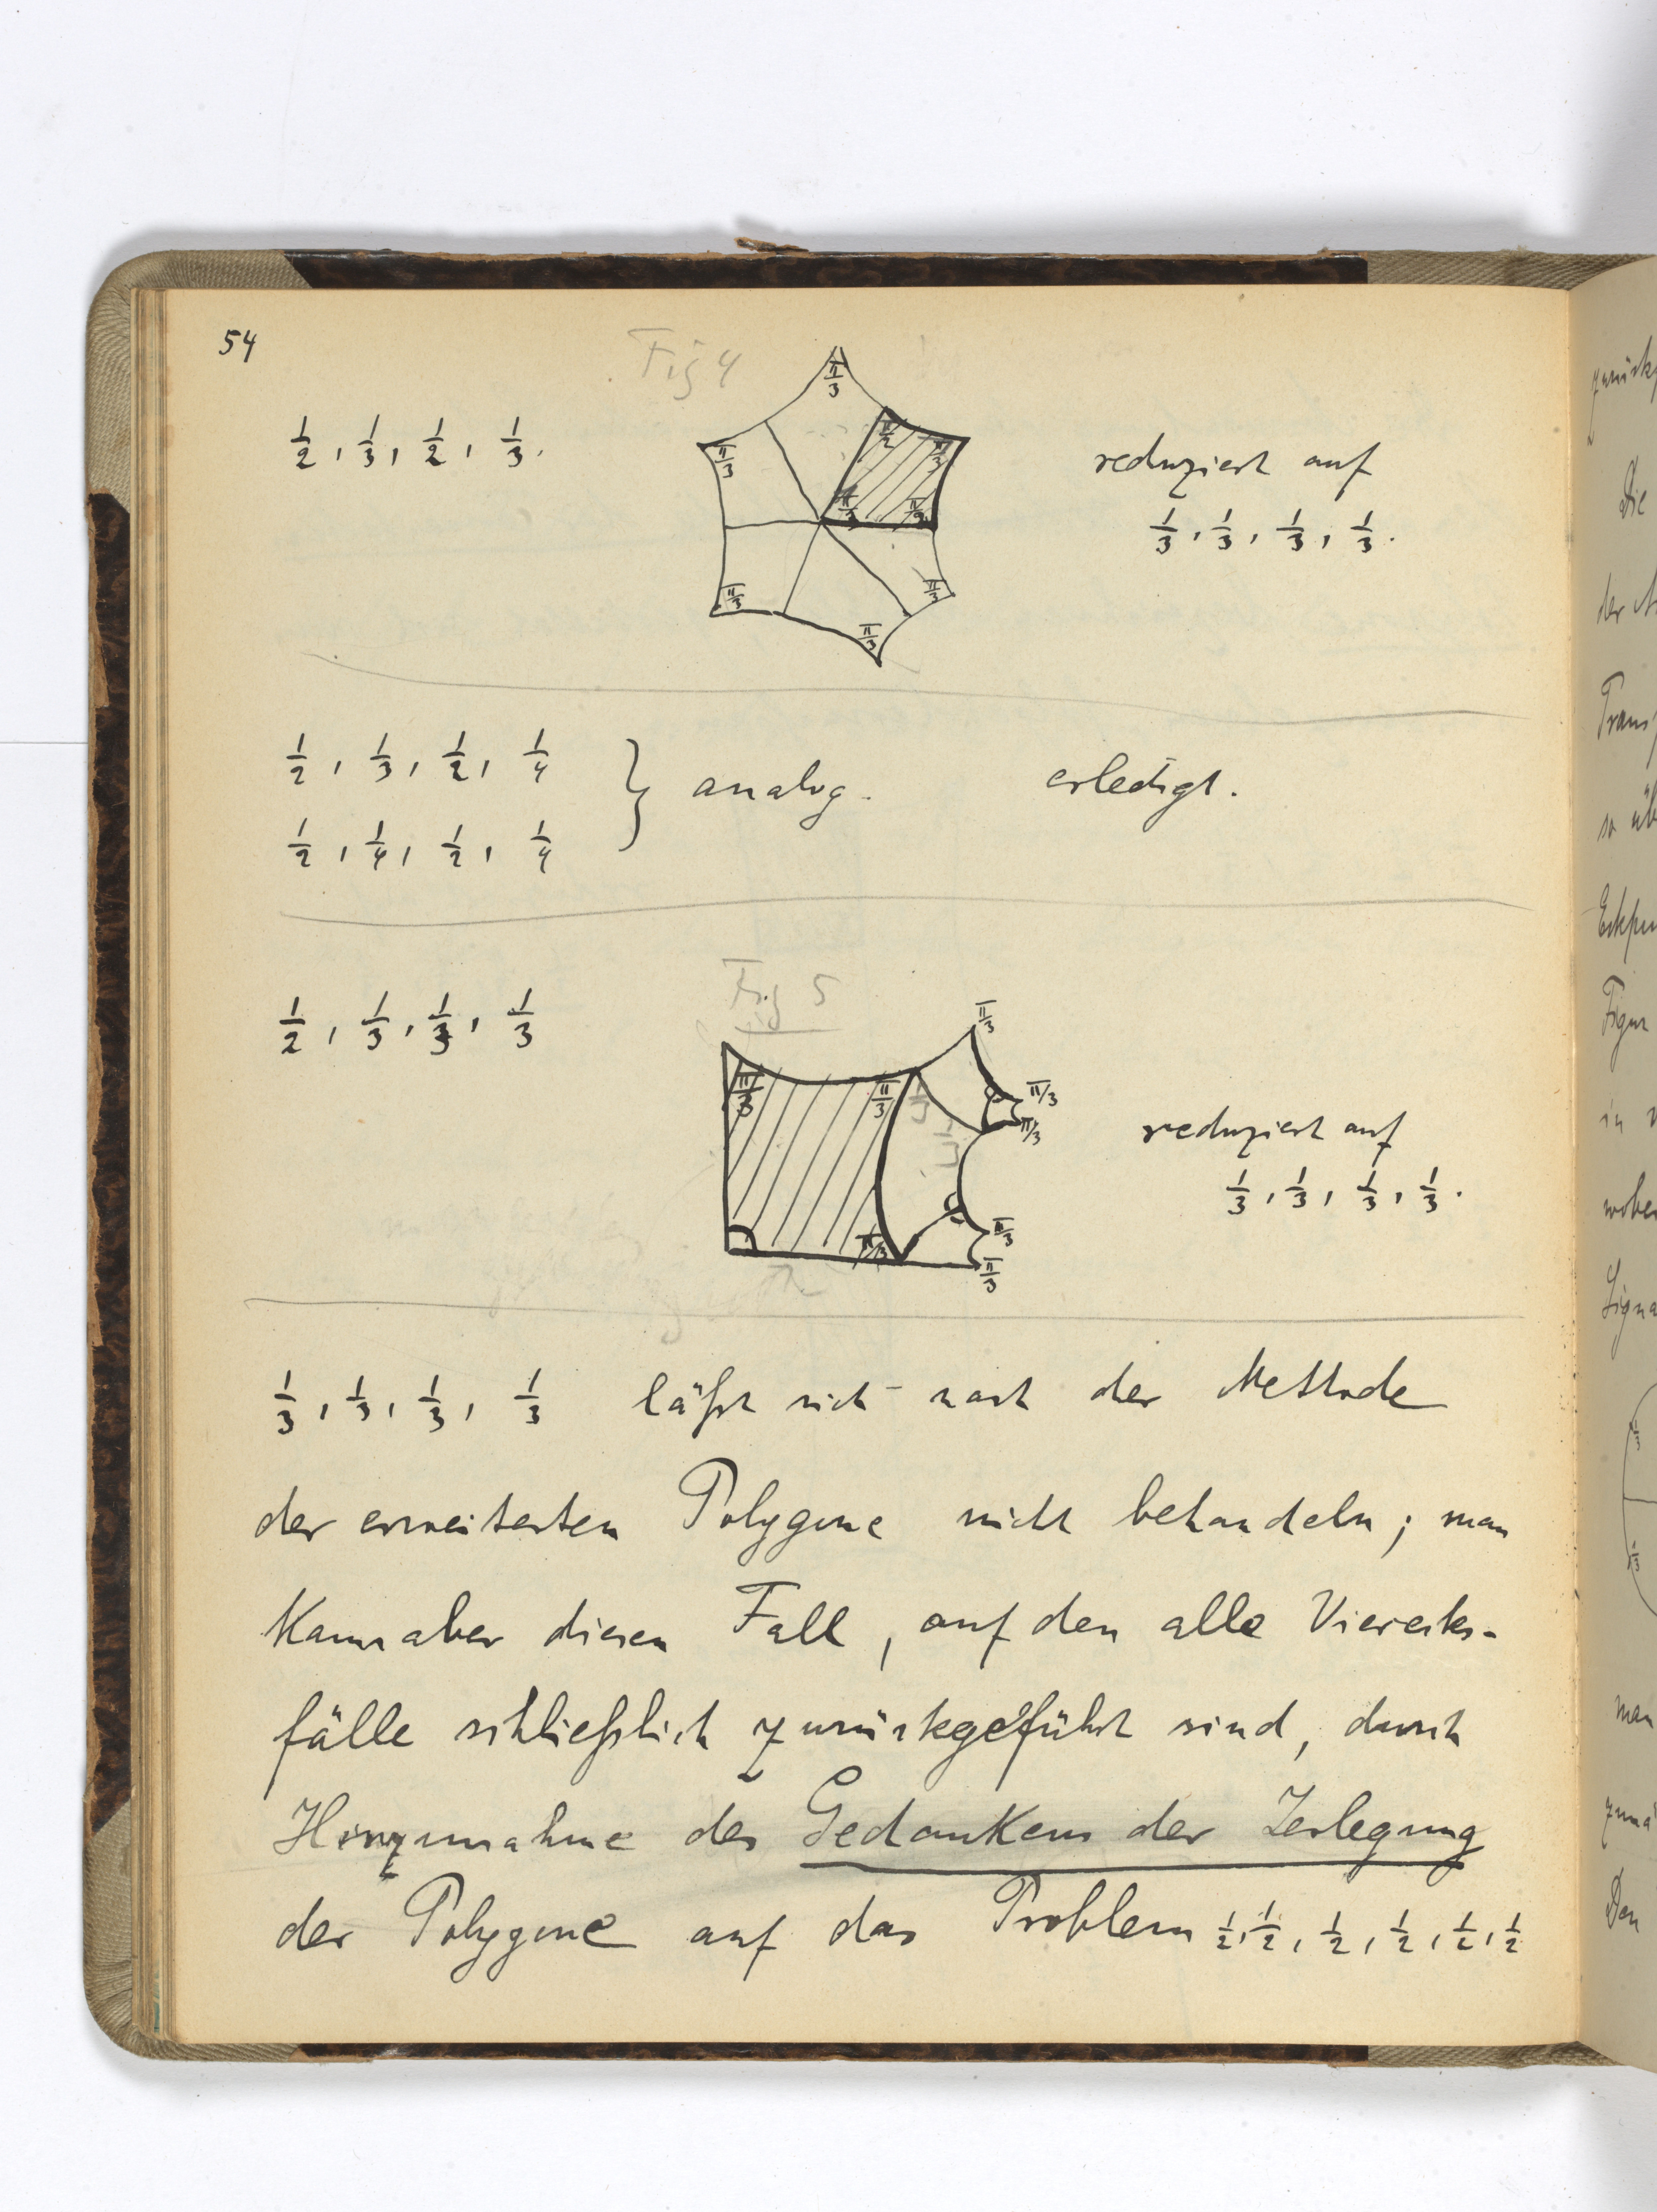 54
Fig 4
1/2, 1/3, 1/2, 1/3.
π/3
π/3
π/2
π/3
π/3
π/2
π/3
π/3
π/3
reduziert auf
1/3, 1/3, 1/3, 1/3.
1/2, 1/3, 1/2, 1/4
1/2, 1/4, 1/2, 1/4
} analog. erledigt.
Fig 5
1/2, 1/3, 1/3, 1/3
π/3
π/3
π/3
π/3
π/3
π/3
π/3
π/3
reduziert auf
1/3, 1/3, 1/3, 1/3.
1/3, 1/3, 1/3, 1/3 läßt sich nach der Methode
der erweiterten Polygone nicht behandeln; man
kann aber diesen Fall, auf den alle Vierecks-
fälle schließlich zurückgeführt sind, durch
Hinzunahme des Gedankens der Zerlegung
der Polygone auf das Problem 1/2, 1/2, 1/2, 1/2, 1/2, 1/2
Die
so
Figur
in
man
Den